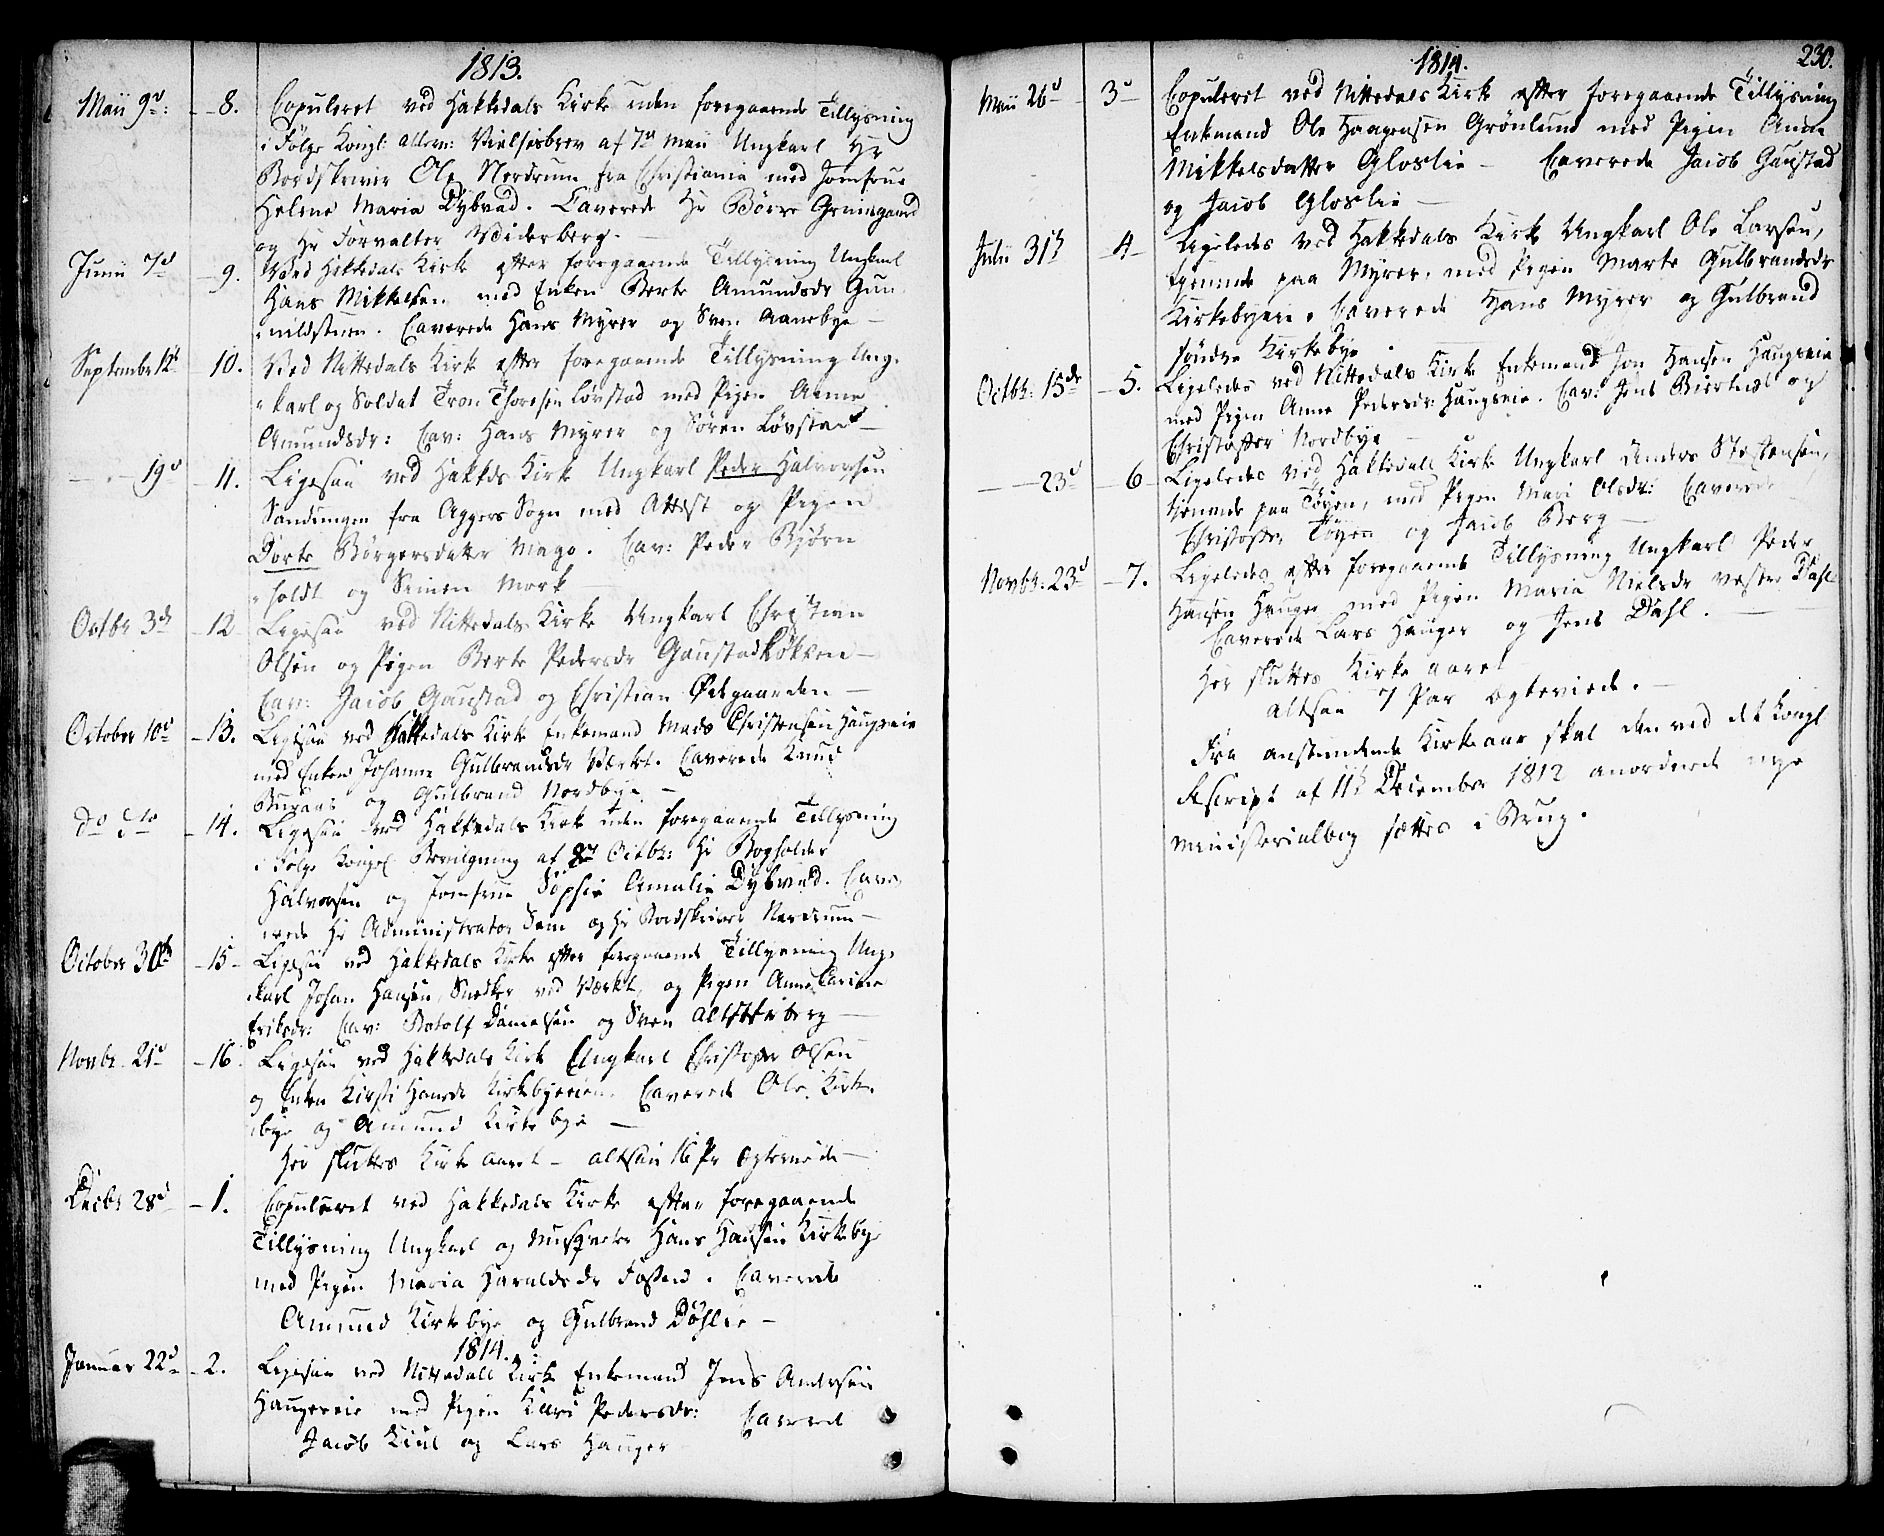 1813.
Maii 9d: - 8. Copuleret ved Hakkedals Kirke uden foregaaende Tillysning
i Følge Kongl: allern: Vielsesbrev af 7de Maii Ungkarl Hr
Bordskriver Ole Nordrum fra Christiania med Jomfrue
Helene Maria Dybvad. Caverede Hr Børre Gevinsgaard
og Hr Forvalter Widerberg.
Junii 7d - 9. Ved Hakkedals Kirke efter foregaaende Tillysning Ungkarl
Hans Mikkelsen med Enken Berte Amundsdr Gun
nildstuen. Caverede Hans Myrer og Sven Aanebye -
Septembr 12t 10. Ved Nittedals Kirke efter foregaaende Tillysning Ung-
karl og Soldat Tron Thoresen Løvstad med Pigen Anne
Amundsdr: Cav: Hans Myrer og Søren Løvstad -
- - 19d - 11. Ligesaa ved Hakkds Kirke Ungkarl Peder Halvorsen
Sandungen fra Aggers Sogn med Attest og Pigen
Dorte Børgersdatter Mago. Cav: Peder Bjørn
holdt og Simen Mork
Octbr 3de - 12 Ligesaa ved Nittedals Kirke Ungkarl Christian
Olsen og Pigen Berte Pedersdr Gaustadløkken -
Cav: Jacob Gaustad og Christian Ødegaarden -
October 10d - 13. Ligesaa ved Hakkedals Kirke Enkemand Mads Christensen Haugseie
med Enken Johanne Gulbrandsdr Værket. Caverede Knud
Buraas og Gulbrand Nordbye -
do do - 14. Ligesaa ved Hakkedals Kirke uden foregaaende Tillysning
i Følge Kongel Bevilgning af 8de Octbr: Hr Bogholder
Halvorsen og Jomfrue Sophie Amalie Dybvad. Cave
rede Hr Administrator Dam og Hr Bordskriver Nordrum -
October 30te - 15 - Ligesaa ved Hakkedals Kirke efter foregaaende Tillysning Ung-
karl Johan Hansen, Snedker ved Værket, og Pigen Anne Carine
Eriksdr: Cav: Botolf Danielsen og Sven Aldstkiberg -
Novbr. 21d - 16. Ligesaa ved Hakkedals Kirke Ungkarl Christopher Olsen
og Enken Kirsti Hansdr Kirkebyeeien. Caverede Ole Kirke
bye og Amund Kirkebye -
Her sluttes Kirke Aaret - altsaa 16 Pr Egteviede -
Decbr 28d - 1. Copuleret ved Hakkedals Kirke efter foregaaende
Tillysning Ungkarl og Musqueter Hans Hansen Kirkebye
med Pigen Maria Haraldsdr Fossen. Caverede
Amund Kirkebye og Gulbrand Døhlie -
1814.
Januar 22d - 2. Ligesaa ved Nittedals Kirke Enkemand Jens Andersen
Haugereie med Pigen Kari Pedersdr: Caverede
Jacob Kiul og Lars Hauger
230.
1814.
Maii 26d 3d - Copuleret ved Nittedals Kirke efter foregaaende Tillysning
Enkemand Ole Haagensen Grønlund med Pigen Anne
Mikkelsdatter Gloslie - Caverede Jacob Gaustad
og Jacob Gloslie -
Julii 31te - 4 - Ligeledes ved Hakkedals Kirke Ungkarl Ole Larsen,
tjenende paa Myrer, med Pigen Marte Gulbrandsdr
Kirkebyeeie. Caverede Hans Myrer og Gulbrand
søndre Kirkebye.
Octbr: 15de - 5. Ligeledes ved Nittedals Kirke Enkemand Jon Hansen Haugseie
med Pigen Anne Pedersdr: Haugseie. Cav: Jens Biertnæs og
Christoffer Nordbye -
- - 23d - 6 - Ligeledes ved Hakkedals Kirke Ungkarl Anders Stephensen,
tienende paa Tøyen, med Pigen Mari Olsdr: Caverede
Christoffer Tøyen og Jacob Berg -
Novbr: 23d - 7. Ligeledes efter foregaaende Tillysning Ungkarl Peder
Hansen Hauger med Pigen Maria Nielsdr vestre Dahl
Caverede Lars Hauger og Jens Dahl. -
Her sluttes Kirkeaaret
Altsaa 7 Par Egteviede. -
Fra anstundende Kirkeaar skal den ved det Kongl
Rescript af 11te December 1812 anordnede nye
Ministerialbog sættes i Brug.